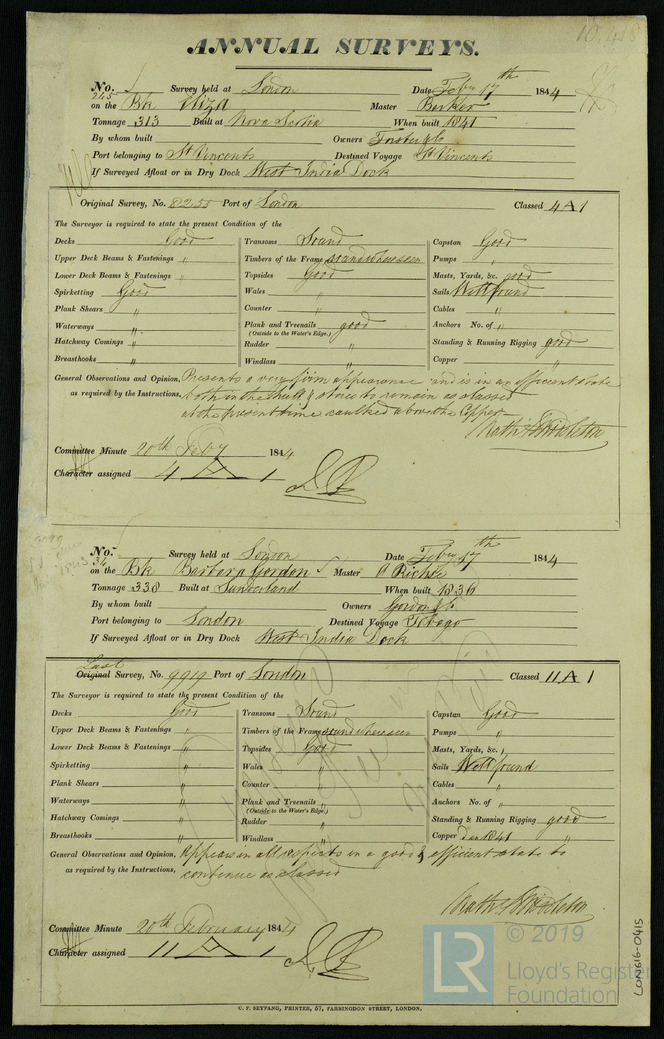 ANNUAL SURVEYS.
No. Survey held at London Date Feby 17th 1844
245 on the Bk Eliza Master Barker
Tonnage 313 Built at Nova Scotia When built 1841
By whom built Owners Forster & Co
Port belonging to St Vincents Destined Voyage St Vincents
If Surveyed Afloat or in Dry Dock West India Dock
Original Survey, No. 8255 Port of London Classed 4 A 1
The Surveyor is required to state the present Condition of the
Decks Good Transoms Sound Capstan Good
Upper Deck Beams & Fastenings " Timbers of the Frame sound where seen Pumps "
Lower Deck Beams & Fastenings " Topsides Good Masts, Yards, &c. good
Spirketting Good Wales " Sails Well found
Plank Shears " Counter " Cables "
Waterways " Plank and Treenails good Anchors No. of "
(Outside to the Water's Edge.)
Hatchway Comings " Rudder " Standing & Running Rigging good
Breasthooks " Windlass " Copper "
General Observations and Opinion, Presents a very firm appearance and is in an efficient state
as required by the Instructions, both in the hull & stores to remain as classed
at the present time caulked above the Copper
Committee Minute 20th Feby 1844
Character assigned 4 A 1
No. Survey held at London Date Feby 17th 1844
34 on the Bk Barbara Gordon Master A Richie
Tonnage 338 Built at Sunderland When built 1836
By whom built Owners Gordon & Co
Port belonging to London Destined Voyage Tobago
If Surveyed Afloat or in Dry Dock West India Dock
Last
Original Survey, No. 9919 Port of London Classed 11 A 1
The Surveyor is required to state the present Condition of the
Decks Good Transoms Sound Capstan Good
Upper Deck Beams & Fastenings " Timbers of the Frame sound where seen Pumps "
Lower Deck Beams & Fastenings " Topsides Good Masts, Yards, &c. "
Spirketting " Wales " Sails Well found
Plank Shears " Counter " Cables "
Waterways " Plank and Treenails " Anchors No. of "
(Outside to the Water's Edge.)
Hatchway Comings " Rudder " Standing & Running Rigging good
Breasthooks " Windlass " Copper 1841 "
General Observations and Opinion, Appears in all respects in a good & efficient state to
as required by the Instructions, continue as classed
Committee Minute 20th February 1844
Character assigned 11 A 1
C. F. SEYFANG, PRINTER, 57, FARRINGDON STREET, LONDON.
LON616-0415
LR © 2019
Lloyd's Register
Foundation